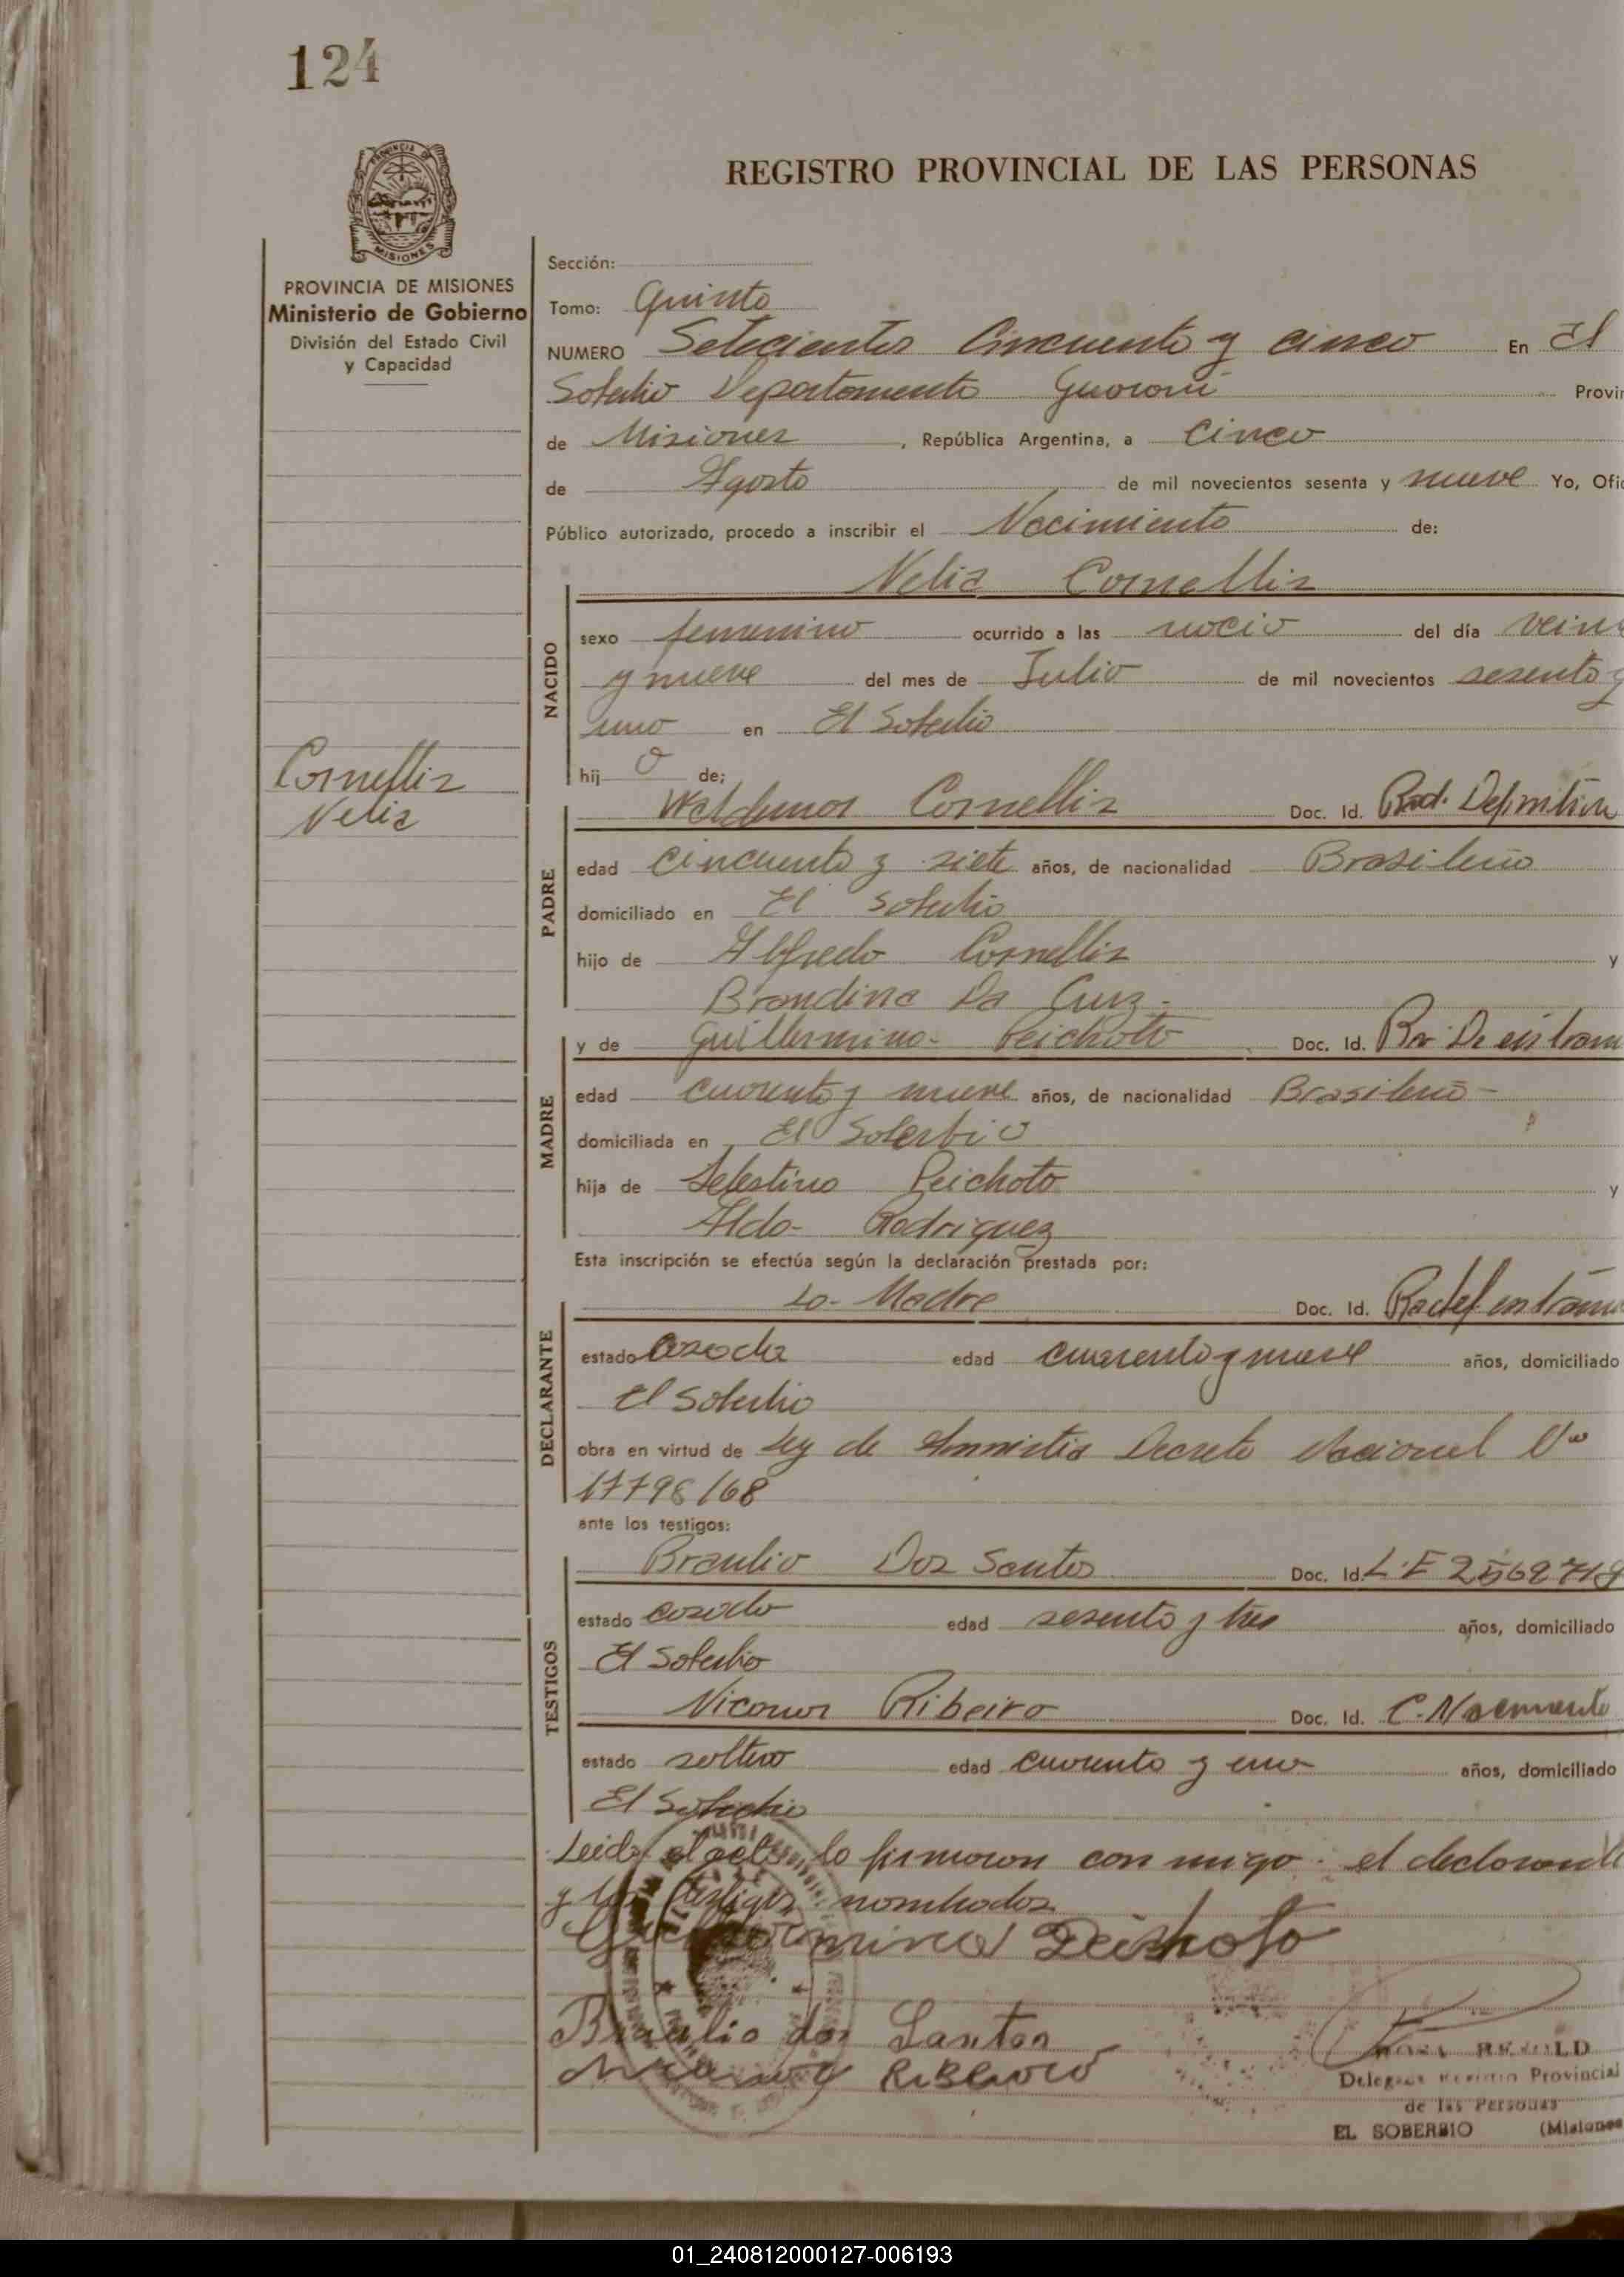 124
REGISTRO PROVINCIAL DE LAS PERSONAS
PROVINCIA DE
MISIONES
PROVINCIA DE MISIONES
Ministerio de Gobierno
División del Estado Civil
y Capacidad
Sección:
Tomo: Quinto
NUMERO Setecientos Cincuenta y cinco En El
Soberbio Departamento Guaraní Provin
de Misiones , República Argentina, a Cinco
de Agosto de mil novecientos sesenta y nueve Yo, Ofic
Público autorizado, procedo a inscribir el Nacimiento de:
Nelia Cornellis
NACIDO
sexo femenino ocurrido a las del día vein
y nueve del mes de Julio de mil novecientos sesenta y
uno en El Soberbio
Cornellis
Nelia
hij a de;
Waldemar Cornellis Doc. Id. Rad. Definitiva
PADRE
edad cincuenta y siete años, de nacionalidad Brasileño
domiciliado en El Soberbio
hijo de Alfredo Cornellis y
Brandina Da Cruz -
y de Guillermina Peichoto Doc. Id.
MADRE
edad cuarenta y nueve años, de nacionalidad Brasileña -
domiciliada en El Soberbio
hija de Selestino Peichoto y
Alda Rodriguez
Esta inscripción se efectúa según la declaración prestada por:
La Madre Doc. Id. Radef en tram
DECLARANTE
estado casada edad cuarenta y nueve años, domiciliado
El Soberbio
obra en virtud de Ley de Amnistia Decreto Nacional Nº
17796/68
ante los testigos:
Braulio Dos Santos Doc. Id. L.E 2562719
TESTIGOS
estado casado edad sesenta y tres años, domiciliado
El Soberbio
Nicanor Ribeiro Doc. Id. C. Nacimiento
estado soltero edad cuarenta y uno años, domiciliado
El Soberbio
Leida el acta, lo firmaron con migo el declarante
y los testigos nombrados
Guillermina Peishoto
Braulio dos Santos
Ribeiro
Delegado Registro Provincial
de las Personas
EL SOBERBIO (Misiones
01_240812000127-006193